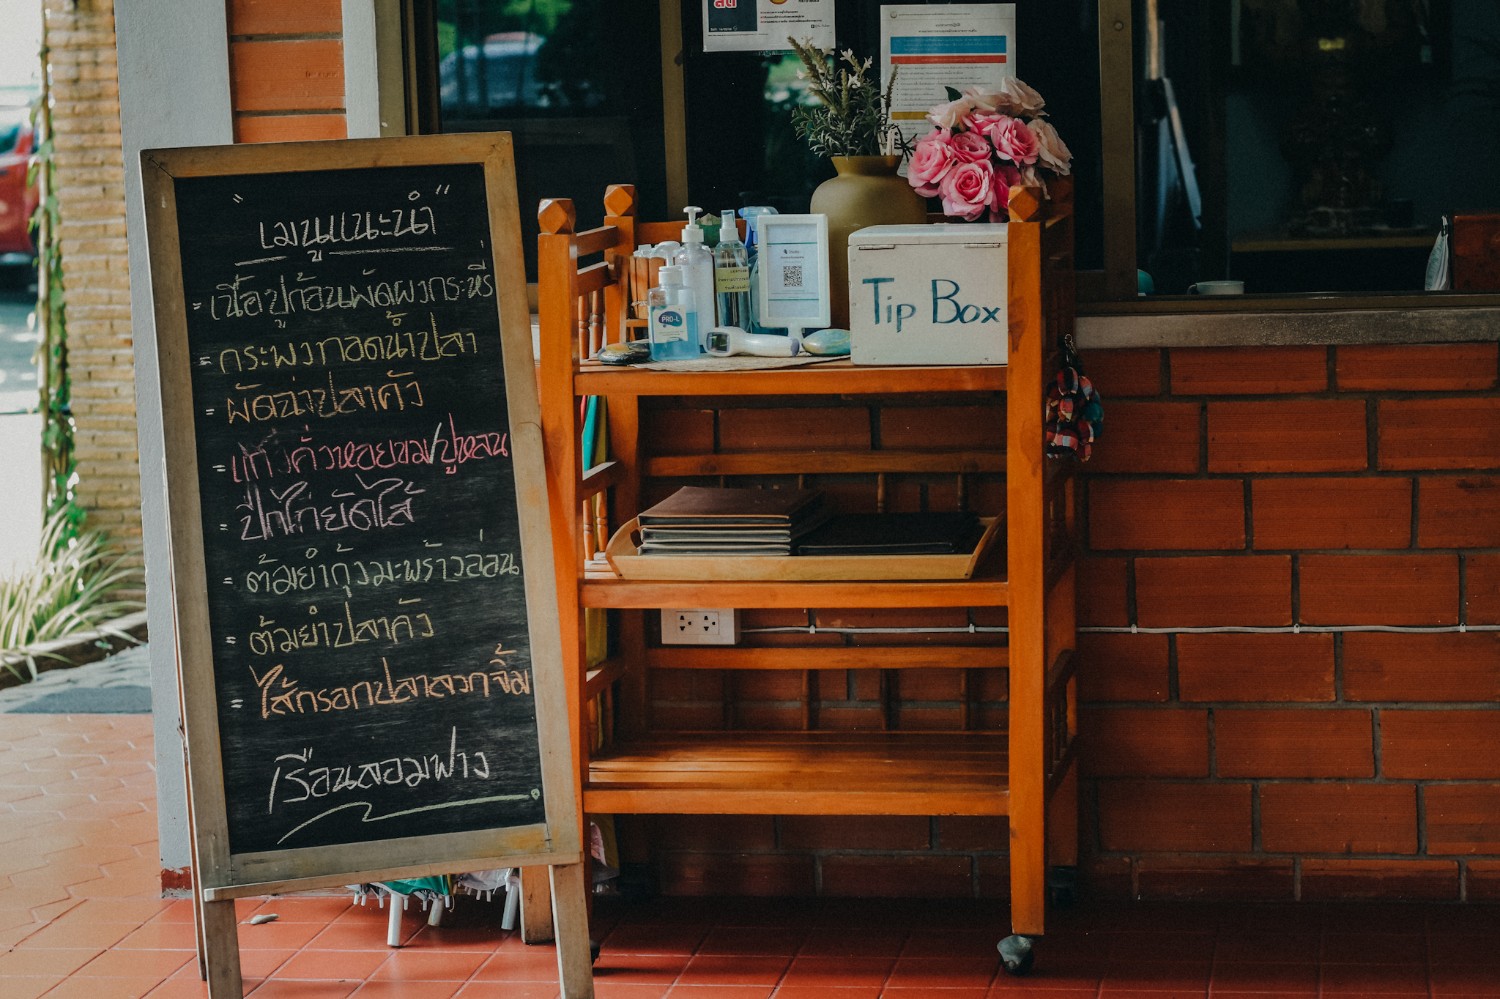 "เมนูแนะนำ"
- เนื้อปูก้อนผัดผงกะหรี่
- กระพงทอดน้ำปลา
- ผัดฉ่าปลาคัง
- แกงคั่วหอยขม/ปูหลน
- ปีกไก่ยัดไส้
- ต้มยำกุ้งมะพร้าวอ่อน
- ต้มยำปลาคัง
- ไส้กรอกปลาลวกจิ้ม
เรือนลอมฟาง
PRO-L
Tip Box